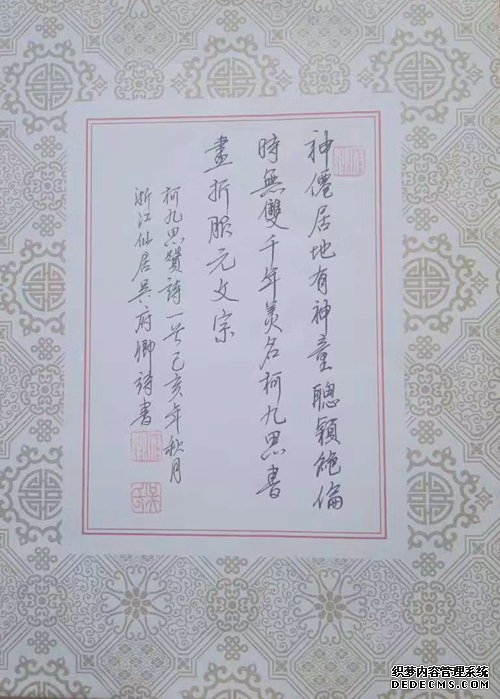 神僊居地有神童聰穎絕倫
時無雙千年美名柯九思書
畫折服元文宗
柯九思贊詩一首己亥年秋月
浙江仙居吳府卿詩書
织梦内容管理系统
DEDECMS.COM